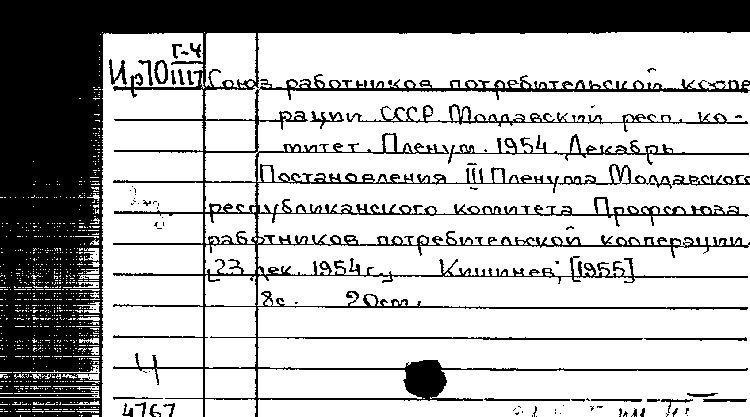 Г-4
Ир70 1117 Союз работников потребительской коопе
рации СССР Молдавский респ. ко-
митет. Пленум. 1954. Декабрь.
Постановления III Пленума Молдавского
республиканского комитета Профсоюза
работников потребительской кооперации.
[23 дек. 1954 г.] Кишинев, [1955]
8с. 20см.
Ч
4767